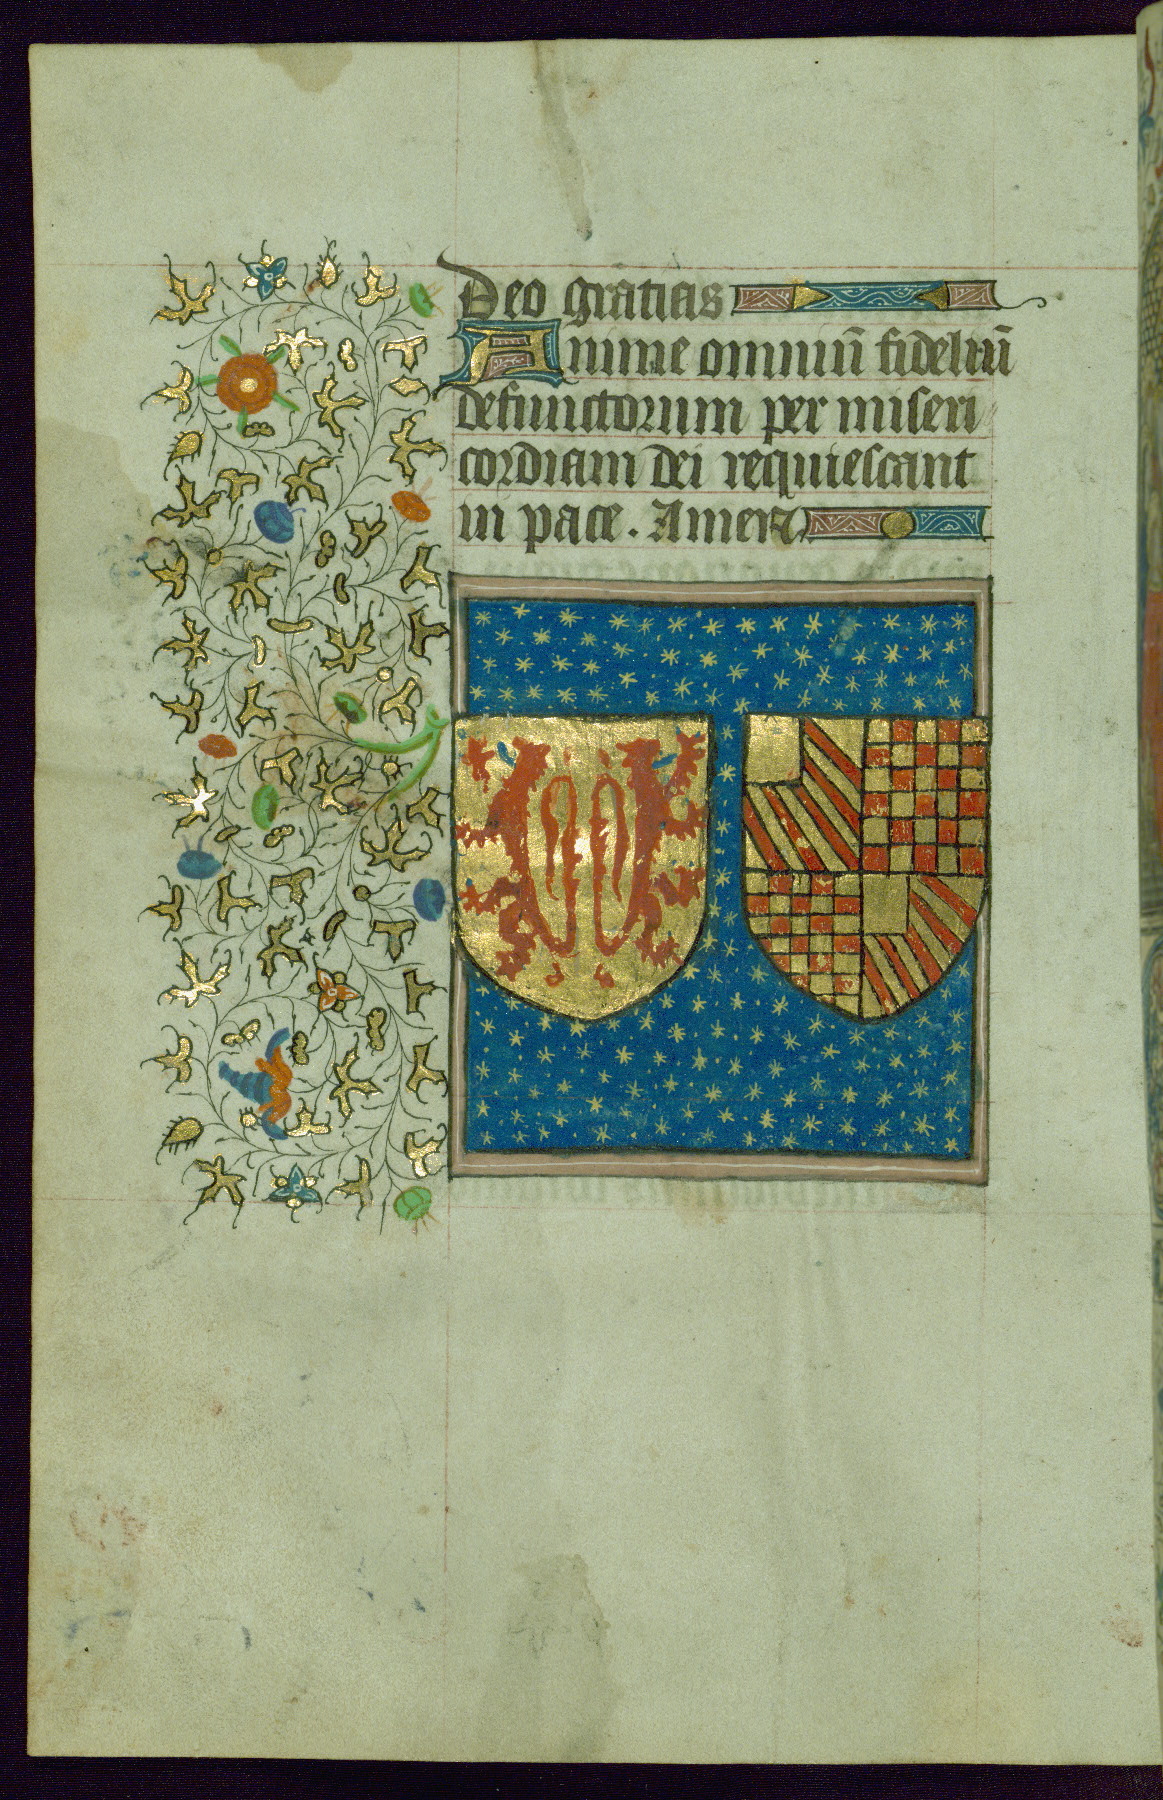 Deo gratias
Anime omniū fideliū
defunctorum per miseri
cordiam dei requiescant
in pace. Amen